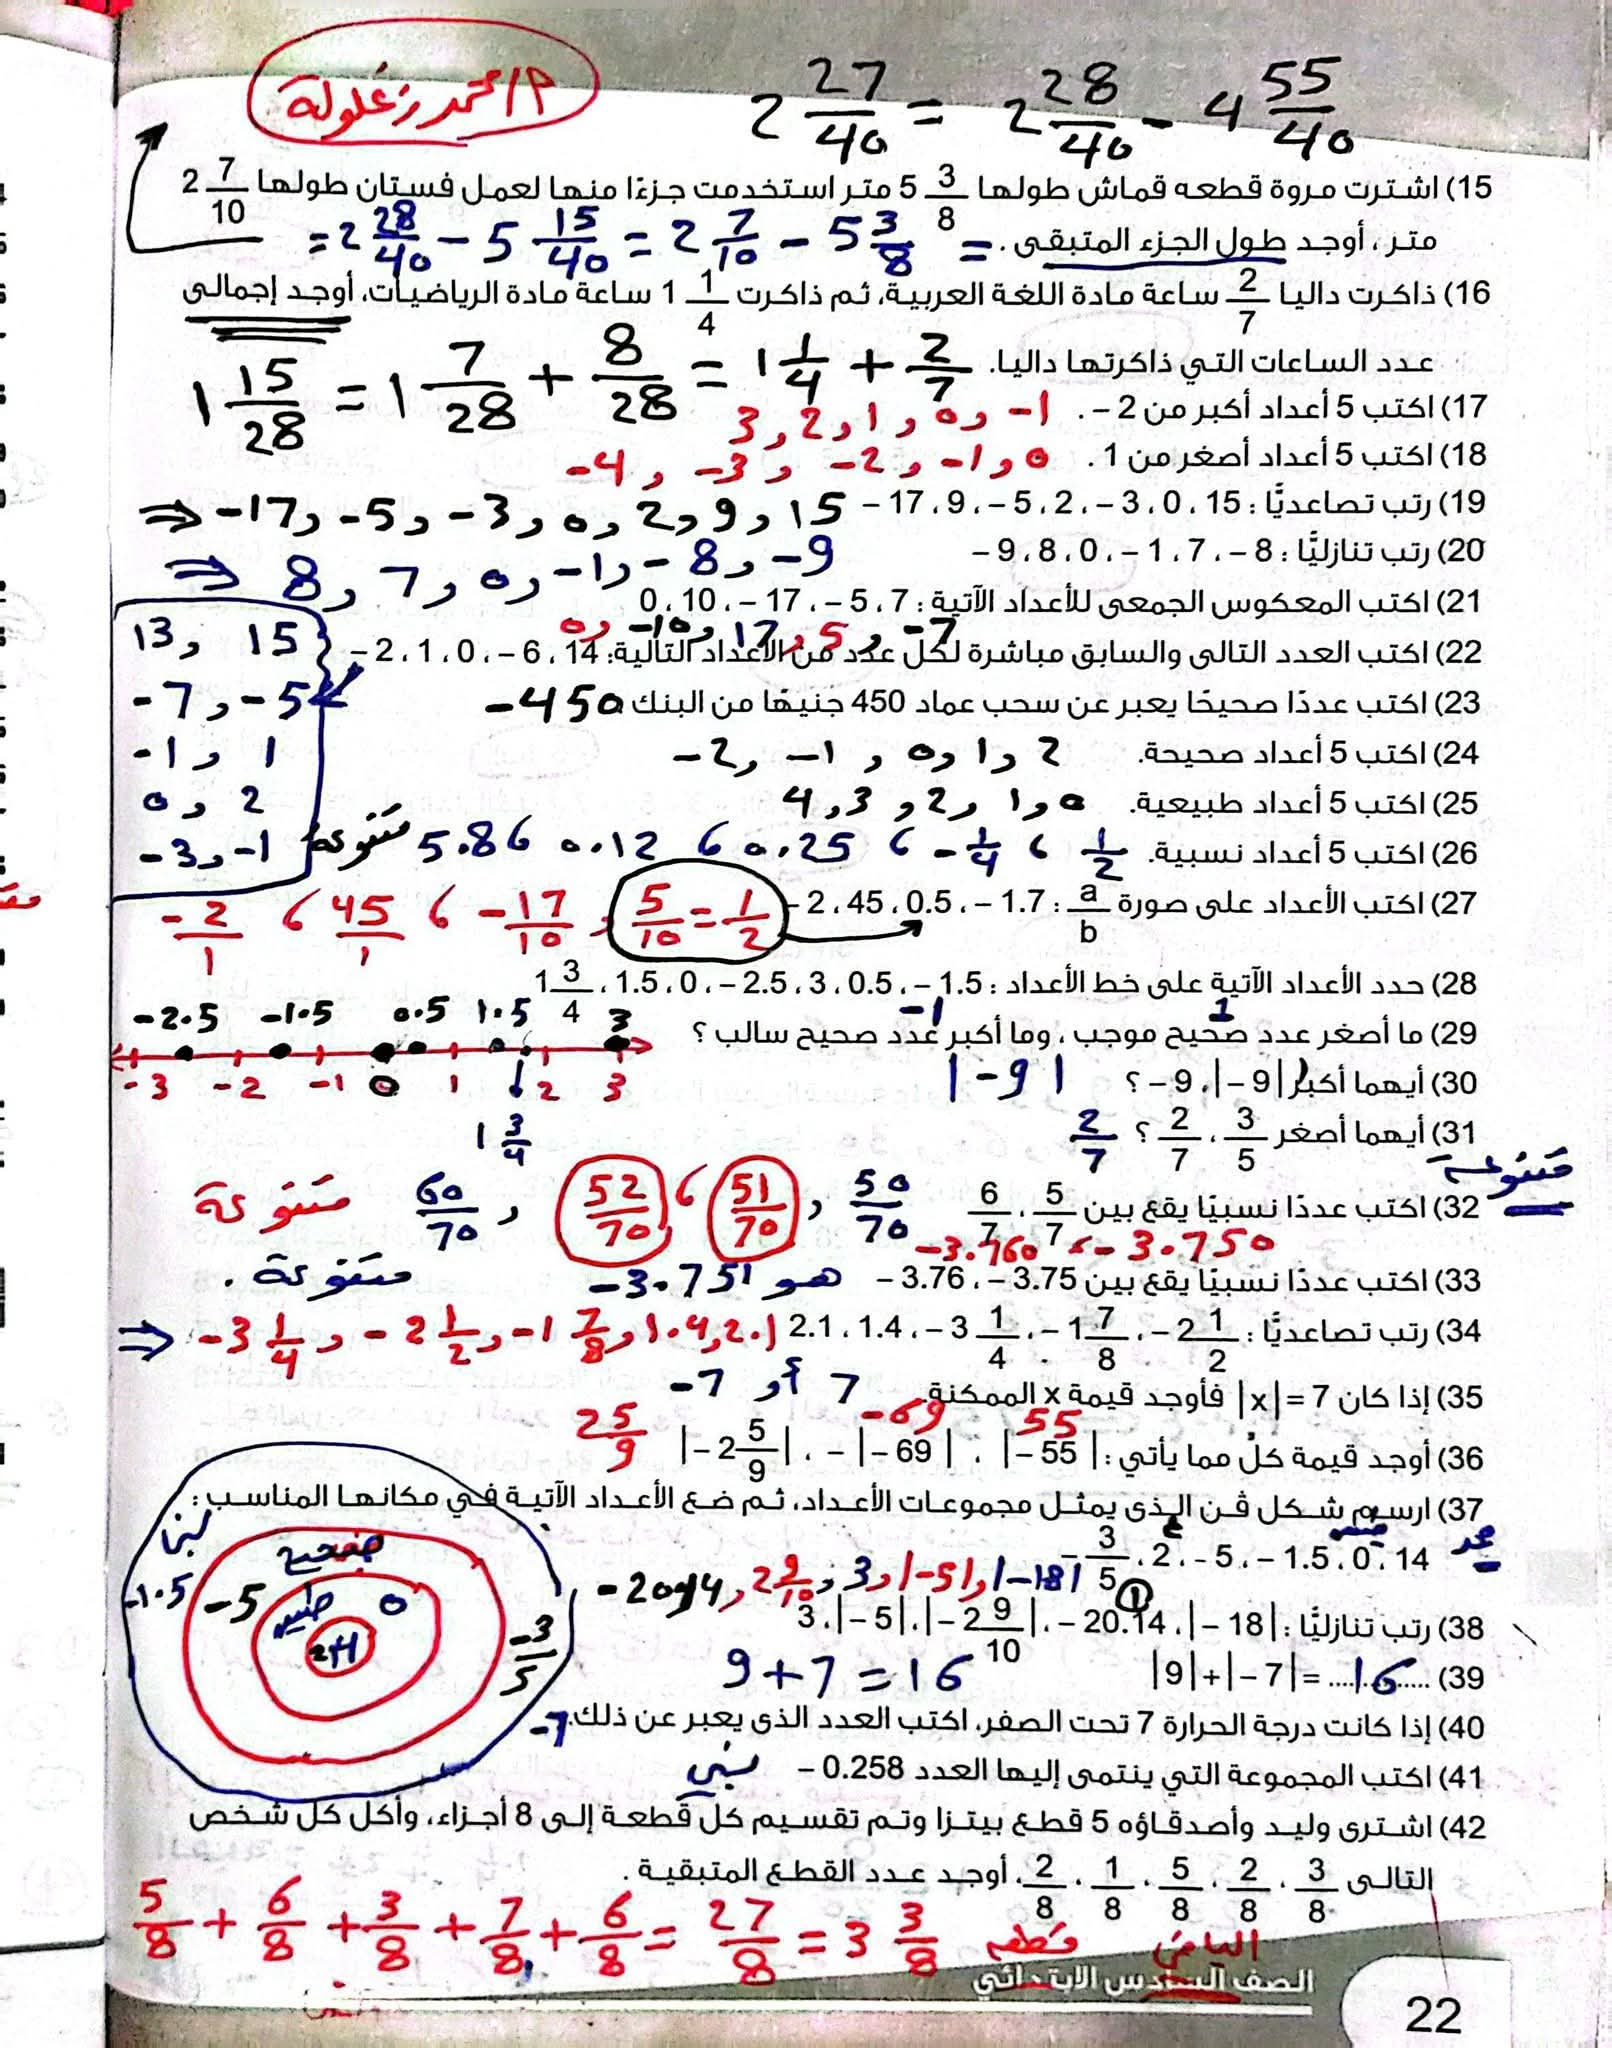 م/ محمد زغلولة
2 27/40 = 2 28/40 - 4 55/40
15) اشترت مروة قطعه قماش طولها 5 3/8 متر استخدمت جزءًا منها لعمل فستان طولها 2 7/10
متر ، أوجد طول الجزء المتبقى .
= 2 28/40 - 5 15/40 = 2 7/10 - 5 3/8 =
16) ذاكرت داليا 2/7 ساعة مادة اللغة العربية، ثم ذاكرت 1 1/4 ساعة مادة الرياضيات، أوجد إجمالى
عدد الساعات التي ذاكرتها داليا.
1 15/28 = 1 7/28 + 8/28 = 1 1/4 + 2/7
17) اكتب 5 أعداد أكبر من 2 - .
3 , 2 , 1 , 0 , -1
18) اكتب 5 أعداد أصغر من 1 .
-4 , -3 , -2 , -1 , 0
19) رتب تصاعديًّا : 15 ، 0 ، 3 - ، 2 ، 5 - ، 9 ، 17 -
⇒ -17 , -5 , -3 , 0 , 2 , 9 , 15
20) رتب تنازليًّا : 8 - ، 7 ، 1 - ، 0 ، 8 ، 9 -
⇒ 8 , 7 , 0 , -1 , -8 , -9
21) اكتب المعكوس الجمعى للأعداد الآتية : 7 ، 5 - ، 17 - ، 10 ، 0
0 , -10 , 17 , 5 , -7
22) اكتب العدد التالى والسابق مباشرة لكل عدد من الأعداد التالية: 14 ، 6 - ، 0 ، 1 ، 2 -
13 , 15
-7 , -5
-1 , 1
0 , 2
-3 , -1
23) اكتب عددًا صحيحًا يعبر عن سحب عماد 450 جنيهًا من البنك
-450
24) اكتب 5 أعداد صحيحة.
-2 , -1 , 0 , 1 , 2
25) اكتب 5 أعداد طبيعية.
4 , 3 , 2 , 1 , 0
26) اكتب 5 أعداد نسبية.
متنوعة 5.8 6 0.12 6 0.25 6 -1/4 6 1/2
27) اكتب الأعداد على صورة a/b : 1.7 - ، 0.5 ، 45 ، 2 -
-2/1 6 45/1 6 -17/10 , 5/10 = 1/2
28) حدد الأعداد الآتية على خط الأعداد : 1.5 - ، 0.5 ، 3 ، 2.5 - ، 0 ، 1.5 ، 1 3/4
-2.5 -1.5 0.5 1.5 3
-3 -2 -1 0 1 2 3
1 3/4
29) ما أصغر عدد صحيح موجب ، وما أكبر عدد صحيح سالب ؟
1 -1
30) أيهما أكبر |9 -| ، 9 - ؟
|-9|
31) أيهما أصغر 3/5 ، 2/7 ؟
2/7
متنوعة
32) اكتب عددًا نسبيًا يقع بين 5/7 ، 6/7
متنوعة 60/70 , 52/70 6 51/70 , 50/70
-3.760 ، -3.750
33) اكتب عددًا نسبيًا يقع بين 3.75 - ، 3.76 -
هو -3.751 متنوعة .
34) رتب تصاعديًّا : 2 1/2 - ، 1 7/8 - ، 3 1/4 - ، 1.4 ، 2.1
⇒ -3 1/4 , -2 1/2 , -1 7/8 , 1.4 , 2.1
35) إذا كان 7 = |x| فأوجد قيمة x الممكنة
7 أو -7
36) أوجد قيمة كل مما يأتي : |- 55| ، - |- 69| ، |- 2 5/9|
55 -69 2 5/9
37) ارسم شكل ڤن الذى يمثل مجموعات الأعداد، ثم ضع الأعداد الآتية في مكانها المناسب :
14 ، 0 ، 1.5 - ، 5 - ، 2 ، 3/5 -
صحيح
-1.5 -5 0
-3/5
38) رتب تنازليًّا : |- 18| ، - 20.14 ، |- 2 9/10| ، |- 5| ، 3
-20.14 , 2 9/10 , 3 , |-5| , |-18|
39) |9| + |- 7| = ....16....
9 + 7 = 16
40) إذا كانت درجة الحرارة 7 تحت الصفر، اكتب العدد الذى يعبر عن ذلك.
-7
41) اكتب المجموعة التي ينتمى إليها العدد 0.258 -
نسبي
42) اشترى وليد وأصدقاؤه 5 قطع بيتزا وتم تقسيم كل قطعة إلى 8 أجزاء، وأكل كل شخص
التالى 3/8 ، 2/8 ، 5/8 ، 1/8 ، 2/8، أوجد عدد القطع المتبقية .
5/8 + 6/8 + 3/8 + 7/8 + 6/8 = 27/8 = 3 3/8 قطعه الباقي
الصف السادس الابتدائي
22